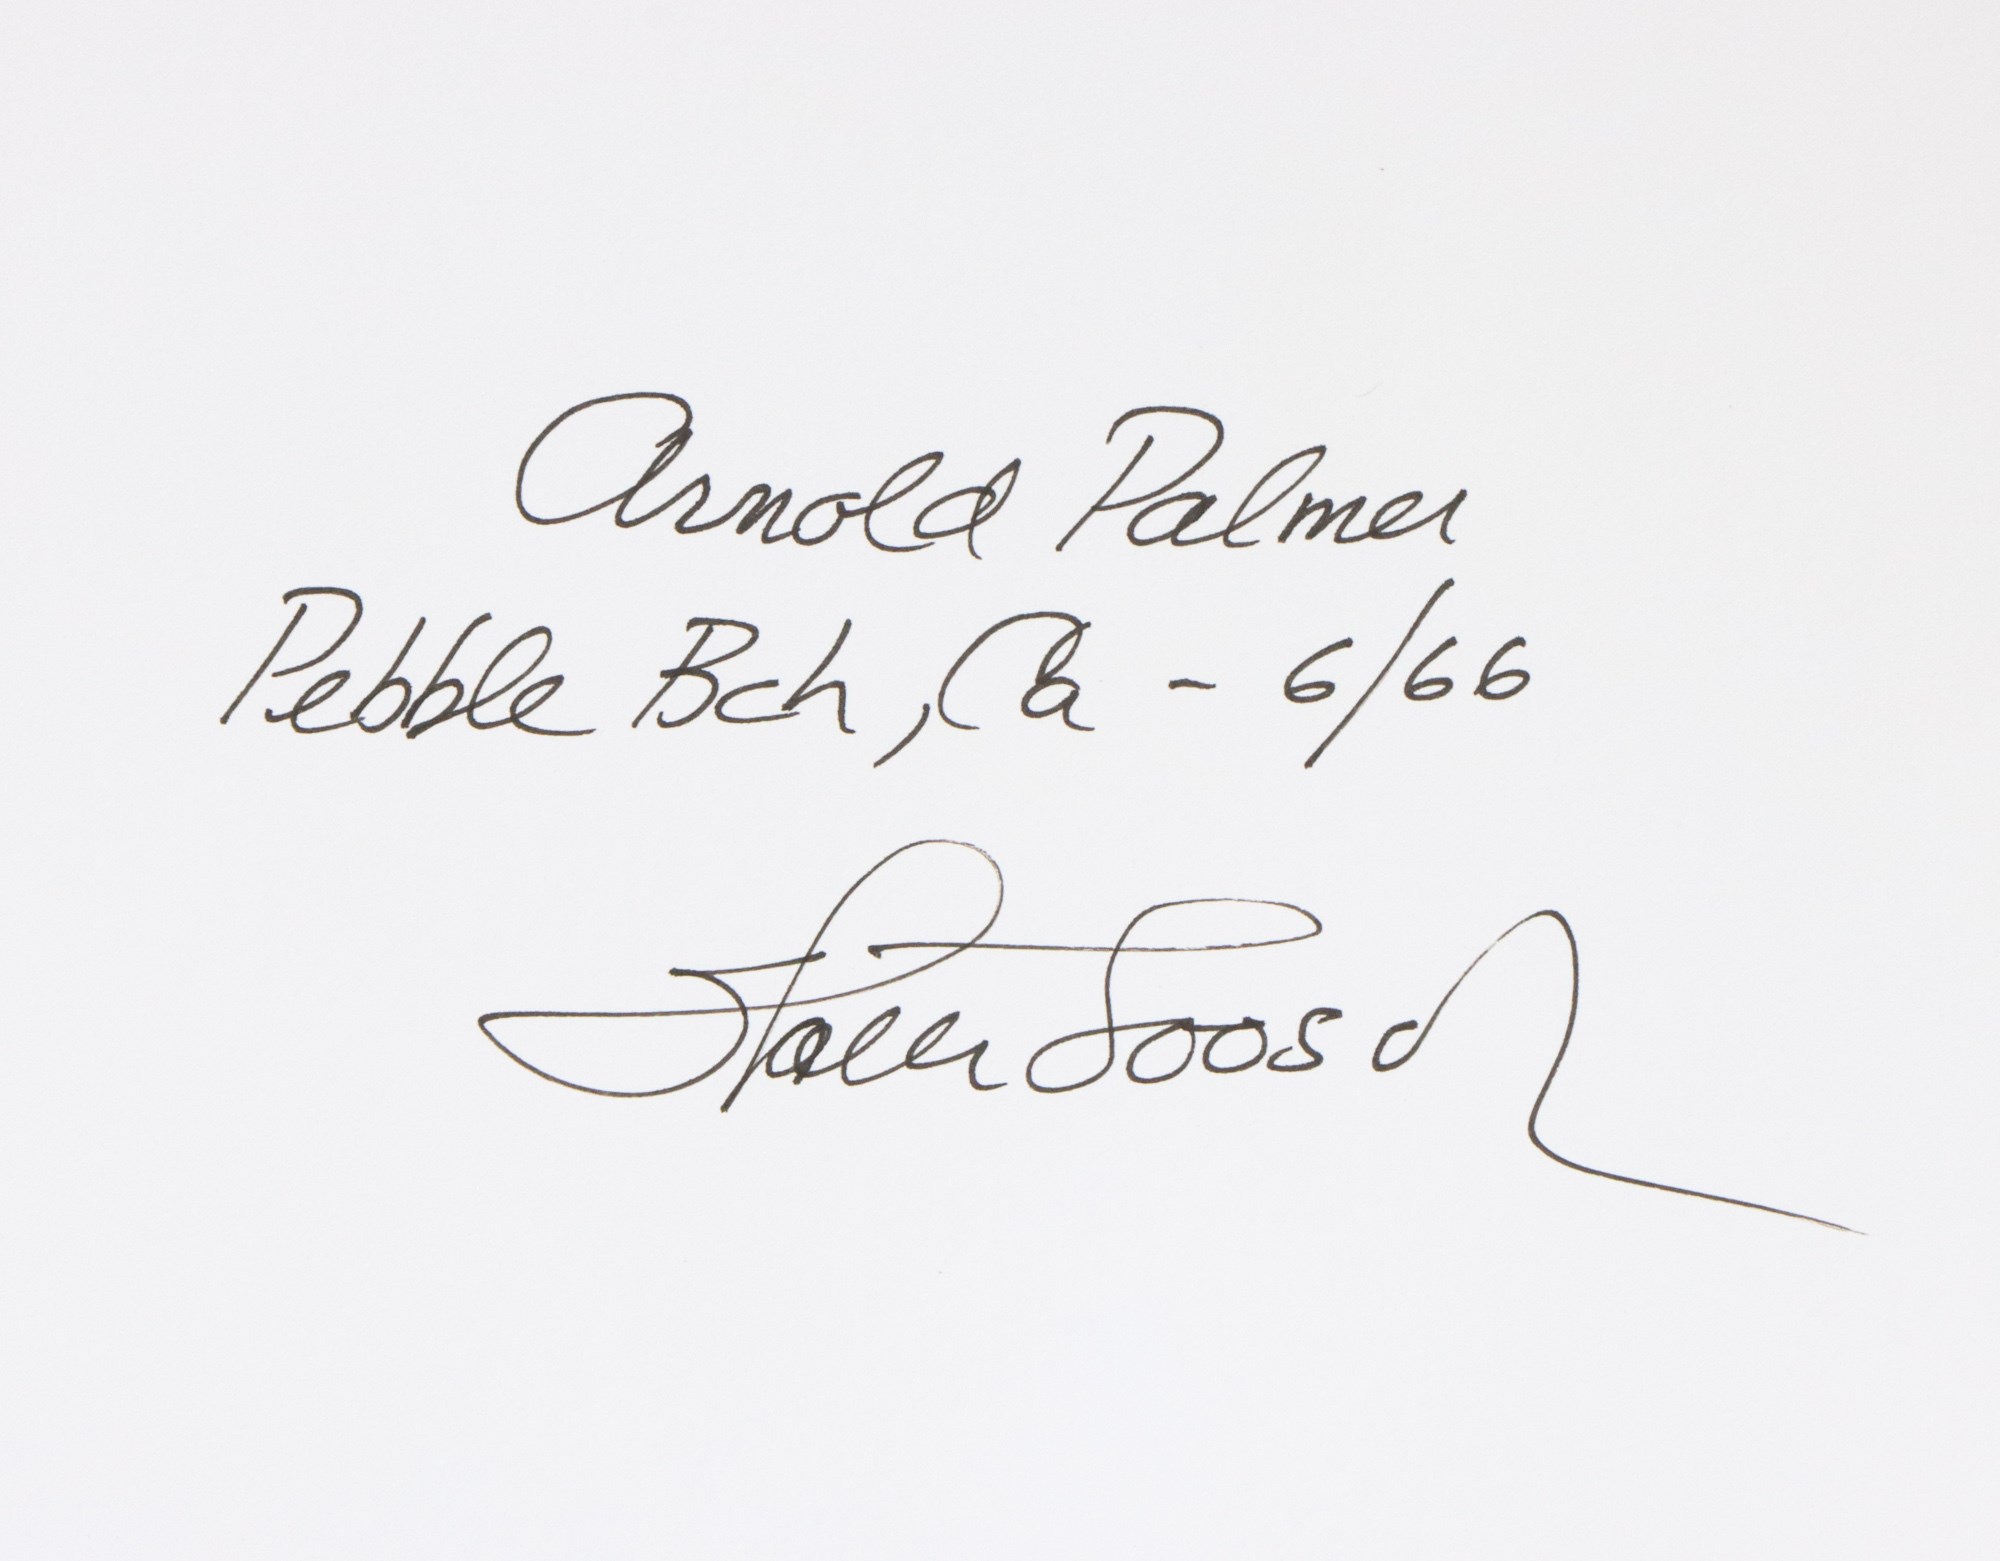 Arnold Palmer
Pebble Bch, Ca - 6/66
Walter Iooss Jr